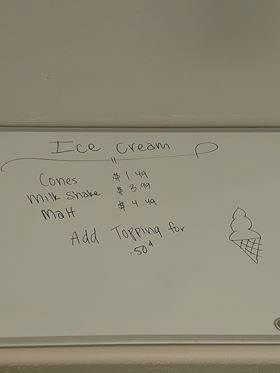 Ice cream
Cones $1.49
Milk Shake $3.99
Malt $4.49
Add Topping for
.50¢